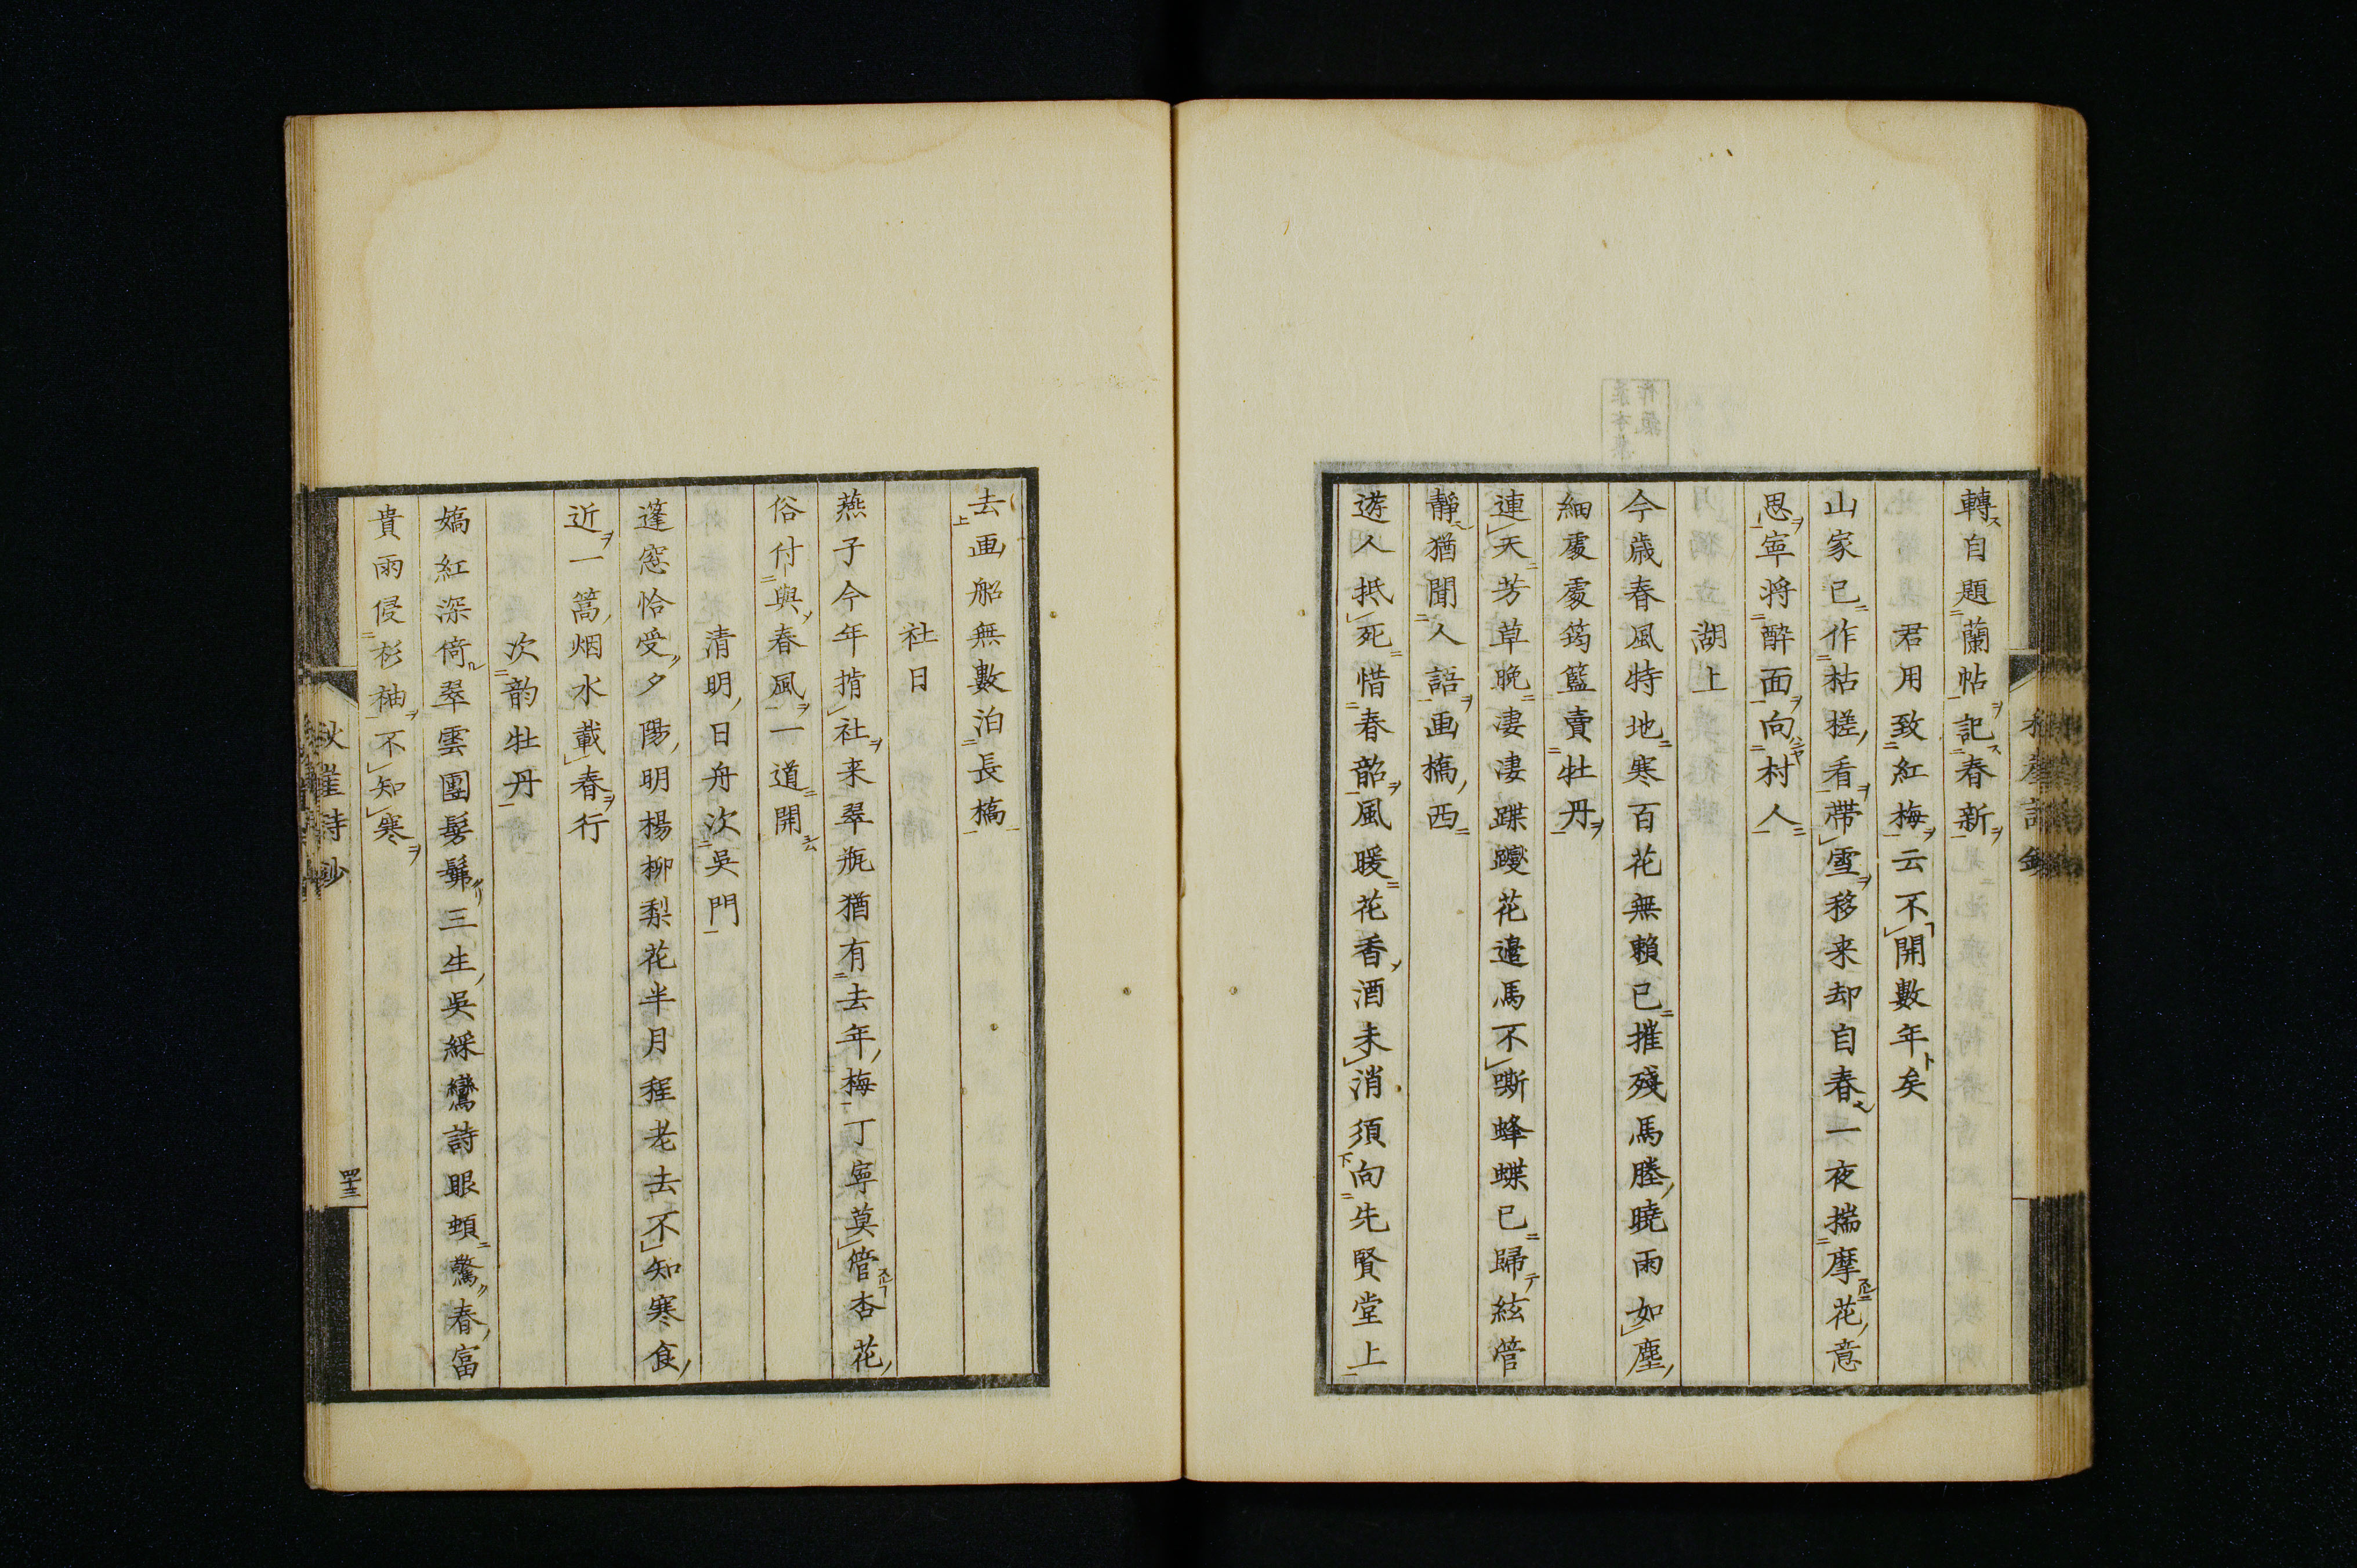 轉自題蘭帖記春新
君用致紅梅云不開數年矣
山家已作枯槎看帶雪移来却自春一夜揣摩花意
思寧将醉面向村人
湖上
今歳春風特地寒百花無頼已摧殘馬塍曉雨如塵
細處處筠籃賣牡丹
連天芳草晚凄凄蹀躞花邉馬不嘶蜂蝶已歸絃管
静猶聞人語画橋西
遊人抵死惜春韶風暖花香酒未消須向先賢堂上
去画船無數泊長橋
社日
燕子今年揹社来翠瓶猶有去年梅丁寧莫管杏花
俗付與春風一道開
清明日舟次呉門
蓬窓恰受夕陽明楊柳梨花半月程老去不知寒食
近一篙烟水載春行
次韵牡丹
嫣紅深倚翠雲團髣髴三生呉綵鸞詩眼頓驚春富
貴雨侵衫袖不知寒
秋崖詩鈔
四十三